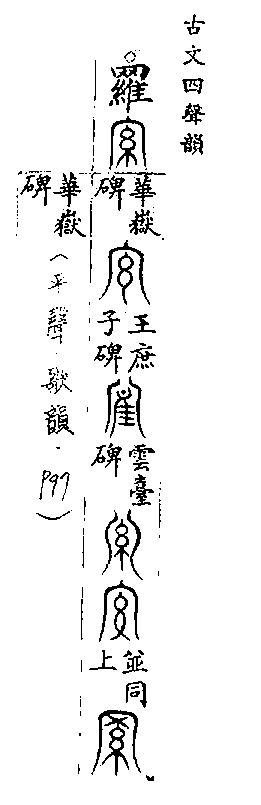 古文四聲韻
羅
華嶽碑
王庶子碑
雲臺碑
並同上
華嶽碑
(平聲.歌韻.P97)